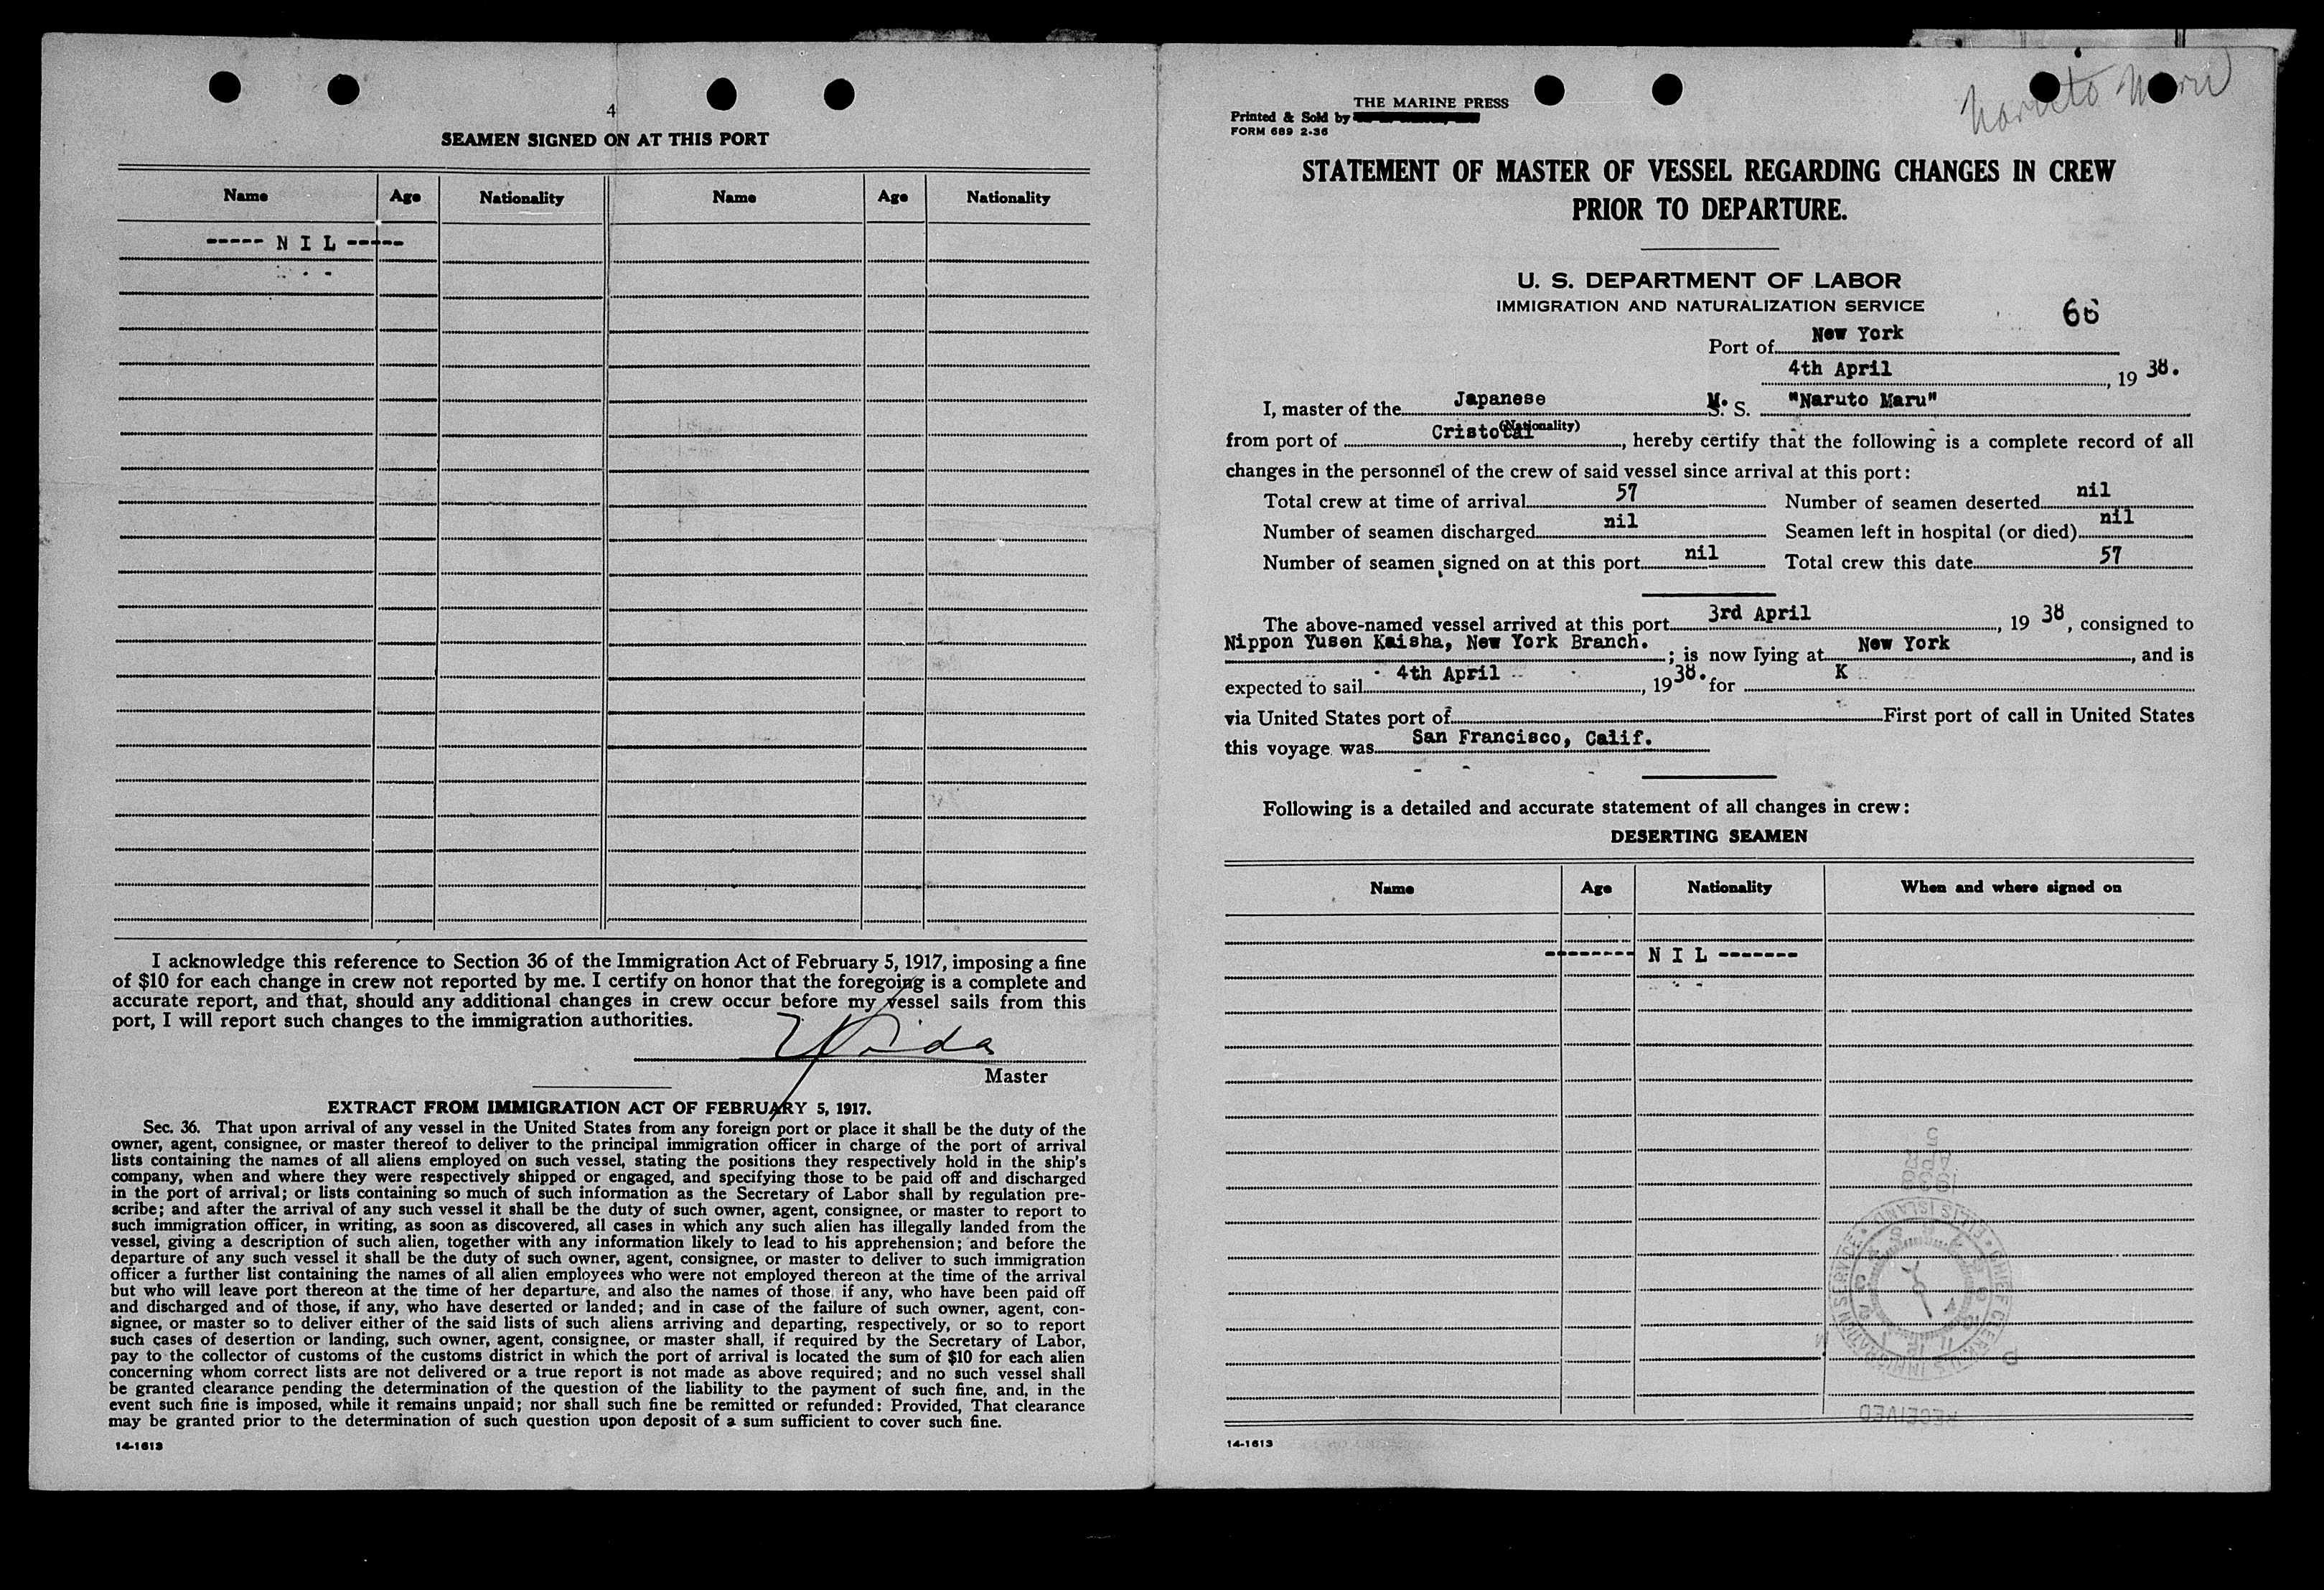 4
SEAMEN SIGNED ON AT THIS PORT
Name Age Nationality Name Age Nationality
----- N I L -----
I acknowledge this reference to Section 36 of the Immigration Act of February 5, 1917, imposing a fine
of $10 for each change in crew not reported by me. I certify on honor that the foregoing is a complete and
accurate report, and that, should any additional changes in crew occur before my vessel sails from this
port, I will report such changes to the immigration authorities.
Master
EXTRACT FROM IMMIGRATION ACT OF FEBRUARY 5, 1917.
Sec. 36. That upon arrival of any vessel in the United States from any foreign port or place it shall be the duty of the
owner, agent, consignee, or master thereof to deliver to the principal immigration officer in charge of the port of arrival
lists containing the names of all aliens employed on such vessel, stating the positions they respectively hold in the ship's
company, when and where they were respectively shipped or engaged, and specifying those to be paid off and discharged
in the port of arrival; or lists containing so much of such information as the Secretary of Labor shall by regulation pre-
scribe; and after the arrival of any such vessel it shall be the duty of such owner, agent, consignee, or master to report to
such immigration officer, in writing, as soon as discovered, all cases in which any such alien has illegally landed from the
vessel, giving a description of such alien, together with any information likely to lead to his apprehension; and before the
departure of any such vessel it shall be the duty of such owner, agent, consignee, or master to deliver to such immigration
officer a further list containing the names of all alien employees who were not employed thereon at the time of the arrival
but who will leave port thereon at the time of her departure, and also the names of those, if any, who have been paid off
and discharged and of those, if any, who have deserted or landed; and in case of the failure of such owner, agent, con-
signee, or master so to deliver either of the said lists of such aliens arriving and departing, respectively, or so to report
such cases of desertion or landing, such owner, agent, consignee, or master shall, if required by the Secretary of Labor,
pay to the collector of customs of the customs district in which the port of arrival is located the sum of $10 for each alien
concerning whom correct lists are not delivered or a true report is not made as above required; and no such vessel shall
be granted clearance pending the determination of the question of the liability to the payment of such fine, and, in the
event such fine is imposed, while it remains unpaid; nor shall such fine be remitted or refunded: Provided, That clearance
may be granted prior to the determination of such question upon deposit of a sum sufficient to cover such fine.
14-1613
Naruto Maru
THE MARINE PRESS
Printed & Sold by
FORM 689 2-36
STATEMENT OF MASTER OF VESSEL REGARDING CHANGES IN CREW
PRIOR TO DEPARTURE.
U. S. DEPARTMENT OF LABOR
IMMIGRATION AND NATURALIZATION SERVICE
66
Port of New York
4th April, 19 38.
I, master of the Japanese M. S. "Naruto Maru"
(Nationality)
from port of Cristobal, hereby certify that the following is a complete record of all
changes in the personnel of the crew of said vessel since arrival at this port:
Total crew at time of arrival 57 Number of seamen deserted nil
Number of seamen discharged nil Seamen left in hospital (or died) nil
Number of seamen signed on at this port nil Total crew this date 57
The above-named vessel arrived at this port 3rd April, 19 38, consigned to
Nippon Yusen Kaisha, New York Branch. ; is now lying at New York, and is
expected to sail 4th April, 19 38. for K
via United States port of First port of call in United States
this voyage was San Francisco, Calif.
Following is a detailed and accurate statement of all changes in crew:
DESERTING SEAMEN
Name Age Nationality When and where signed on
-------- N I L -------
5
APR
1938
CHIEF CLERK U.S. IMMIGRATION SERVICE • ELLIS ISLAND •
RECEIVED
14-1613